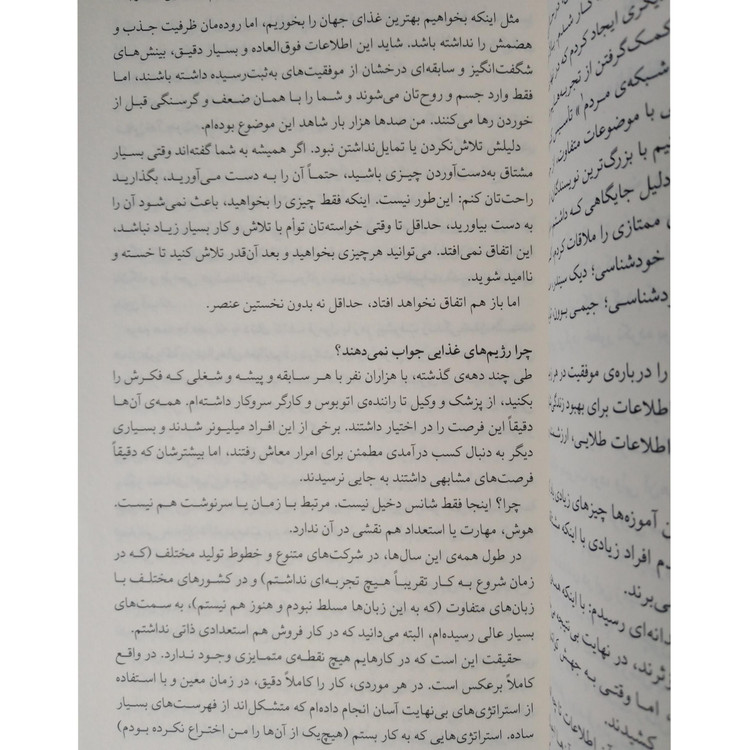 مثل اینکه بخواهیم بهترین غذای جهان را بخوریم، اما روده‌مان ظرفیت جذب و
هضمش را نداشته باشد. شاید این اطلاعات فوق‌العاده و بسیار دقیق، بینش‌های
شگفت‌انگیز و سابقه‌ای درخشان از موفقیت‌های به‌ثبت‌رسیده داشته باشند، اما
فقط وارد جسم و روح‌تان می‌شوند و شما را با همان ضعف و گرسنگی قبل از
خوردن رها می‌کنند. من صدها هزار بار شاهد این موضوع بوده‌ام.
دلیلش تلاش‌نکردن یا تمایل‌نداشتن نبود. اگر همیشه به شما گفته‌اند وقتی بسیار
مشتاق به‌دست‌آوردن چیزی باشید، حتماً آن را به دست می‌آورید، بگذارید
راحت‌تان کنم: این‌طور نیست. اینکه فقط چیزی را بخواهید، باعث نمی‌شود آن را
به دست بیاورید، حداقل تا وقتی خواسته‌تان توأم با تلاش و کار بسیار زیاد نباشد،
این اتفاق نمی‌افتد. می‌توانید هرچیزی بخواهید و بعد آن‌قدر تلاش کنید تا خسته و
ناامید شوید.
اما باز هم اتفاق نخواهد افتاد، حداقل نه بدون نخستین عنصر.
چرا رژیم‌های غذایی جواب نمی‌دهند؟
طی چند دهه‌ی گذشته، با هزاران نفر با هر سابقه و پیشه و شغلی که فکرش را
بکنید، از پزشک و وکیل تا راننده‌ی اتوبوس و کارگر سروکار داشته‌ام. همه‌ی آن‌ها
دقیقاً این فرصت را در اختیار داشتند. برخی از این افراد میلیونر شدند و بسیاری
دیگر به دنبال کسب درآمدی مطمئن برای امرار معاش رفتند، اما بیشترشان که دقیقاً
فرصت‌های مشابهی داشتند به جایی نرسیدند.
چرا؟ اینجا فقط شانس دخیل نیست. مرتبط با زمان یا سرنوشت هم نیست.
هوش، مهارت یا استعداد هم نقشی در آن ندارد.
در طول همه‌ی این سال‌ها، در شرکت‌های متنوع و خطوط تولید مختلف (که در
زمان شروع به کار تقریباً هیچ تجربه‌ای نداشتم) و در کشورهای مختلف با
زبان‌های متفاوت (که به این زبان‌ها مسلط نبودم و هنوز هم نیستم)، به سمت‌های
بسیار عالی رسیده‌ام، البته می‌دانید که در کار فروش هم استعدادی ذاتی نداشتم.
حقیقت این است که در کارهایم هیچ نقطه‌ی متمایزی وجود ندارد. در واقع
کاملاً برعکس است. در هر موردی، کار را کاملاً دقیق، در زمان معین و با استفاده
از استراتژی‌های بی‌نهایت آسان انجام داده‌ام که متشکل‌اند از فهرست‌های بسیار
ساده. استراتژی‌هایی که به کار بستم (هیچ‌یک از آن‌ها را من اختراع نکرده بودم)
یگری ایجاد کردم که در
کمک‌گرفتن از تجربه و
شبکه‌ی مردم» تأسیس
ی با موضوعات متفاوت
یم با بزرگ‌ترین نویسندگان
دلیل جایگاهی که داشتم
ی ممتازی را ملاقات کردم
خودشناسی؛ دیک
ودشناسی؛ جیمی
را درباره‌ی موفقیت در هر
طلاعات برای بهبود زندگی
اطلاعات طلایی، ارزشمند
ن آموزه‌ها چیزهای زیادی
دم افراد زیادی با اینکه
ی‌برند.
دانه‌ای رسیدم: با اینکه
وزند، در نهایت بی‌نتیجه
، اما وقتی به جهش
کشیدند.
اطلاعات